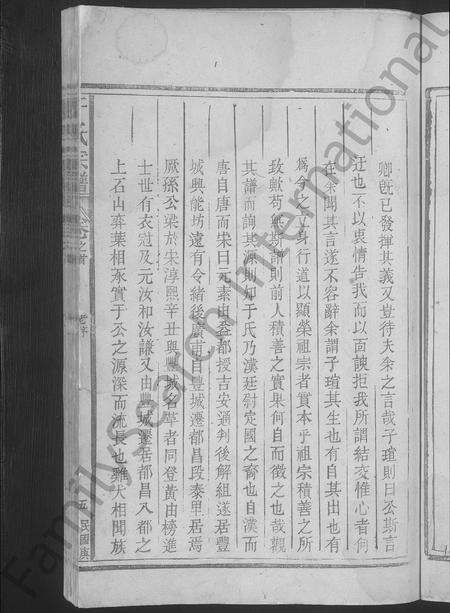 卿旣已發揮其義又豈待夫余之言哉子瑄則曰公斯言
迂也不以衷情告我而以面諛拒我所謂結交惟心者何
在余聞其言遂不容辭余謂子瑄其生也有自其出也有
為今之立身行道以顯榮祖宗者實本乎祖宗積善之所
致歟苟無斯譜則前人積善之實果何自而徵之也哉觀
其譜而詢其源則知于氏乃漢廷尉定國之裔也自漢而
唐自唐而宋曰元素由益都授吉安通判後解組遂居豐
城興能坊遠有令緒後廣甫自豐城遷都昌段泰里居焉
厥孫公梁於宋淳熙辛丑與豐城名舉者同登黃由榜進
士世有衣冠及元汝和汝謙又由豐城遷居都昌八都之
上石山弈葉相承實于公之源深而流長也雞犬相聞族
于氏宗譜
卷之首
老序
五
民國庚
FamilySearch International